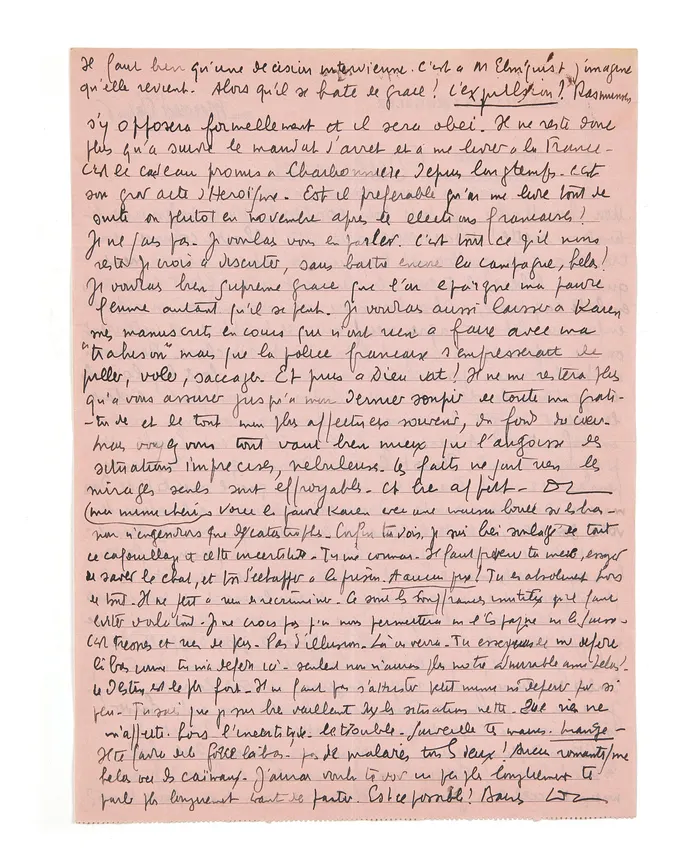 Il faut bien qu'une decision intervienne. C'est a M Elmquist j'imagine
qu'elle revient. Alors qu'il se hate de grace! L'expulsion? Rasmussen
s'y opposera formellement et il sera obei. Il ne reste donc
plus qu'a suivre le mandat d'arret et a me livrer a la France -
C'est le cadeau promis a Charbonniere depuis longtemps. C'est
son gros acte d'Heroisme. Est il preferable qu'on me livre tout de
suite ou plutot en novembre apres les elections francaises?
Je ne sais pas. Je voulais vous en parler. C'est tout ce qu'il nous
reste je crois a discuter, sans battre encore la campagne, helas!
Je voudrais bien supreme grace que l'on epargne ma pauvre
femme autant qu'il se peut. Je voudrais aussi laisser a Karen
mes manuscrits en cours qui n'ont rien a faire avec ma
"trahison" mais que la police francaise s'empresserait de
piller, voler, saccager. Et puis a Dieu vat! Il ne me restera plus
qu'a vous assurer jusqu'a mon dernier soupir de toute ma grati-
-tude et de tout mon plus affectueux souvenir, du fond du coeur.
Mais voyez vous tout vaut bien mieux que l'angoisse des
situations imprecises, nebuleuses. Les faits ne sont rien les
mirages seuls sont effroyables. Et bien affect.
Ma mime cherie Voici la pauvre Karen avec une maison
non n'engendrons que des catastrophes. Enfin tu vois, je suis bien soulagé de tout
ce cafouillage et cette incertitude. Tu me connais. Il faut penser toi meme, essayer
de sauver le chat, et toi d'echapper a la prison. A aucun prix! Tu es absolument hors
de tout. Il ne sert a rien de recriminer. Ce sont les souffrances inutiles qu'il faut
eviter. Je ne crois pas qu'on nous permettra ni l'Espagne ni la Suisse
C'est et rien de plus. Pas d'illusion. Là on verra. Tu essayeras de me defendre
là bas comme tu m'as defendu ici. Seulement nous n'aurons plus notre admirable ami helas!
Le Destin est le plus fort. Il ne faut pas s'attrister petit mime ni desesperer pour si
peu. Tu sais que je suis bien vaillant dans les situations nettes. Que rien ne
m'affecte. Hors l'incertitude, le trouble. Surveille toi mange -
Il te faudra de la force là bas. pas de malades tous les deux! Aucun romantisme
helas J'aimerais te voir un peu plus longuement te
parler plus longuement avant de partir. Est ce possible?